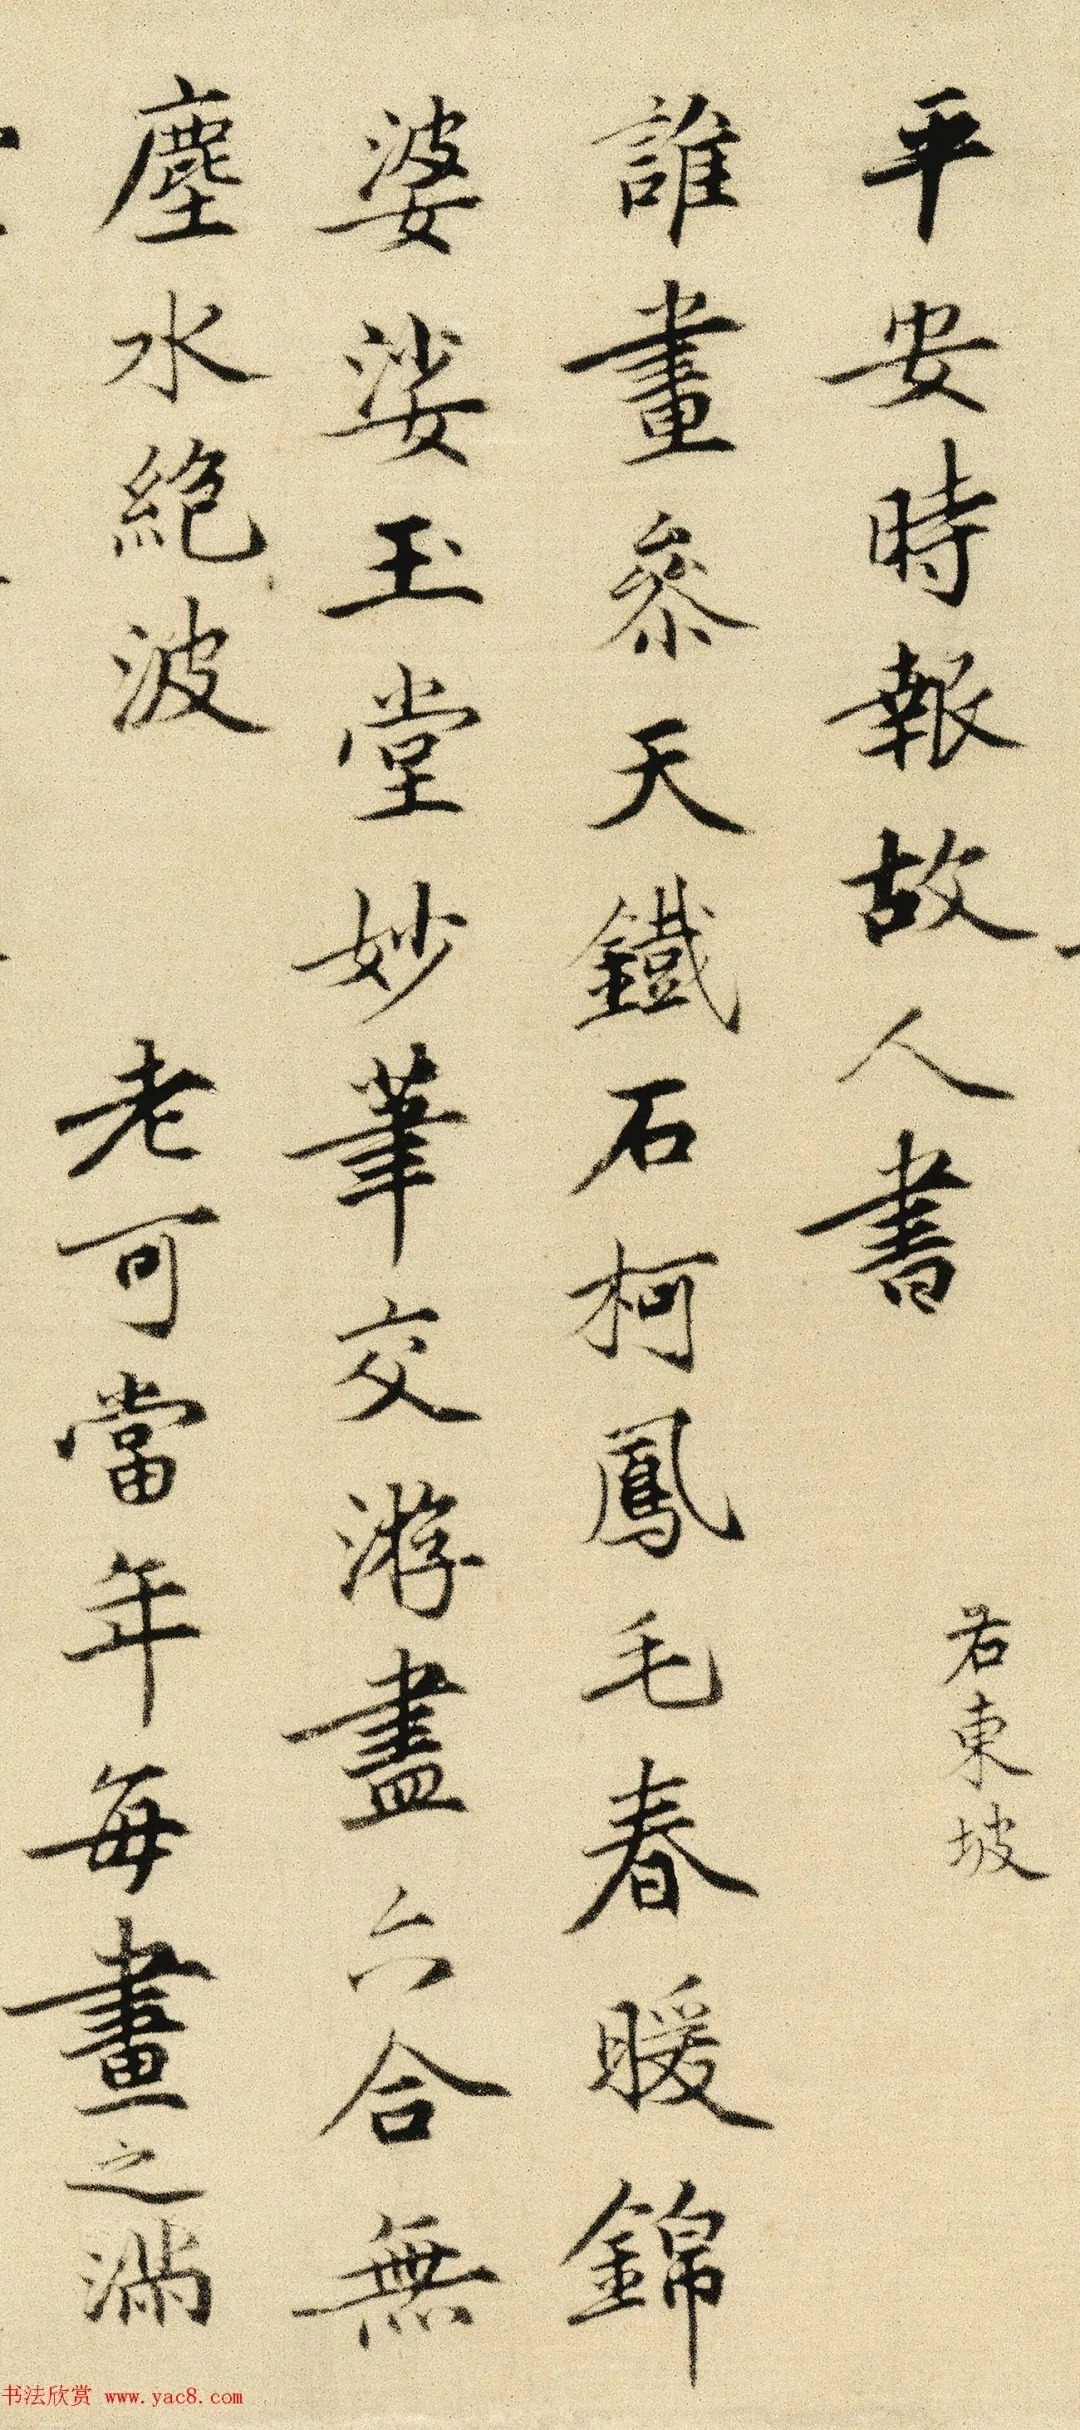 平安時報故人書
右東坡
誰畫參天鐵石柯鳳毛春暖錦
婆娑玉堂妙筆交游盡六合無
塵水絕波
老可當年每畫之滿
书法欣赏 www.yac8.com